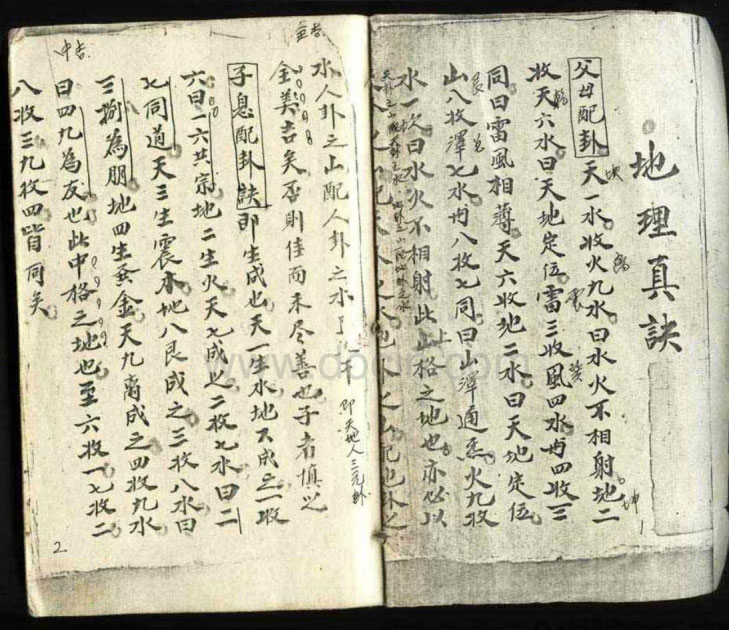 地理真訣
父母配卦 天一水收火九水曰水火不相射地二
收天六水曰天地定位雷三收風四水內四收三
同曰雷風相薄天六收地二水曰天地定位
山八收澤七水內八收七同曰山澤通氣火九收
水一次曰水火不相射此上格之地也亦必以
1
水人卦之山配人卦之水
即天地人三元卦
金美吉矣否則佳而未尽善也子者慎之
子息配卦訣即生成也天一生水地六成之一收
六曰一六共宗地二生火天七成之二收七水曰二
七同道天三生震木地八艮成之三收八水曰
三捌為朋地四生巽金天九离成之四收九水
曰四九為友也此中格之地也至六收一七收二
八收三九收四皆同矣
中吉
2
www.docin.com